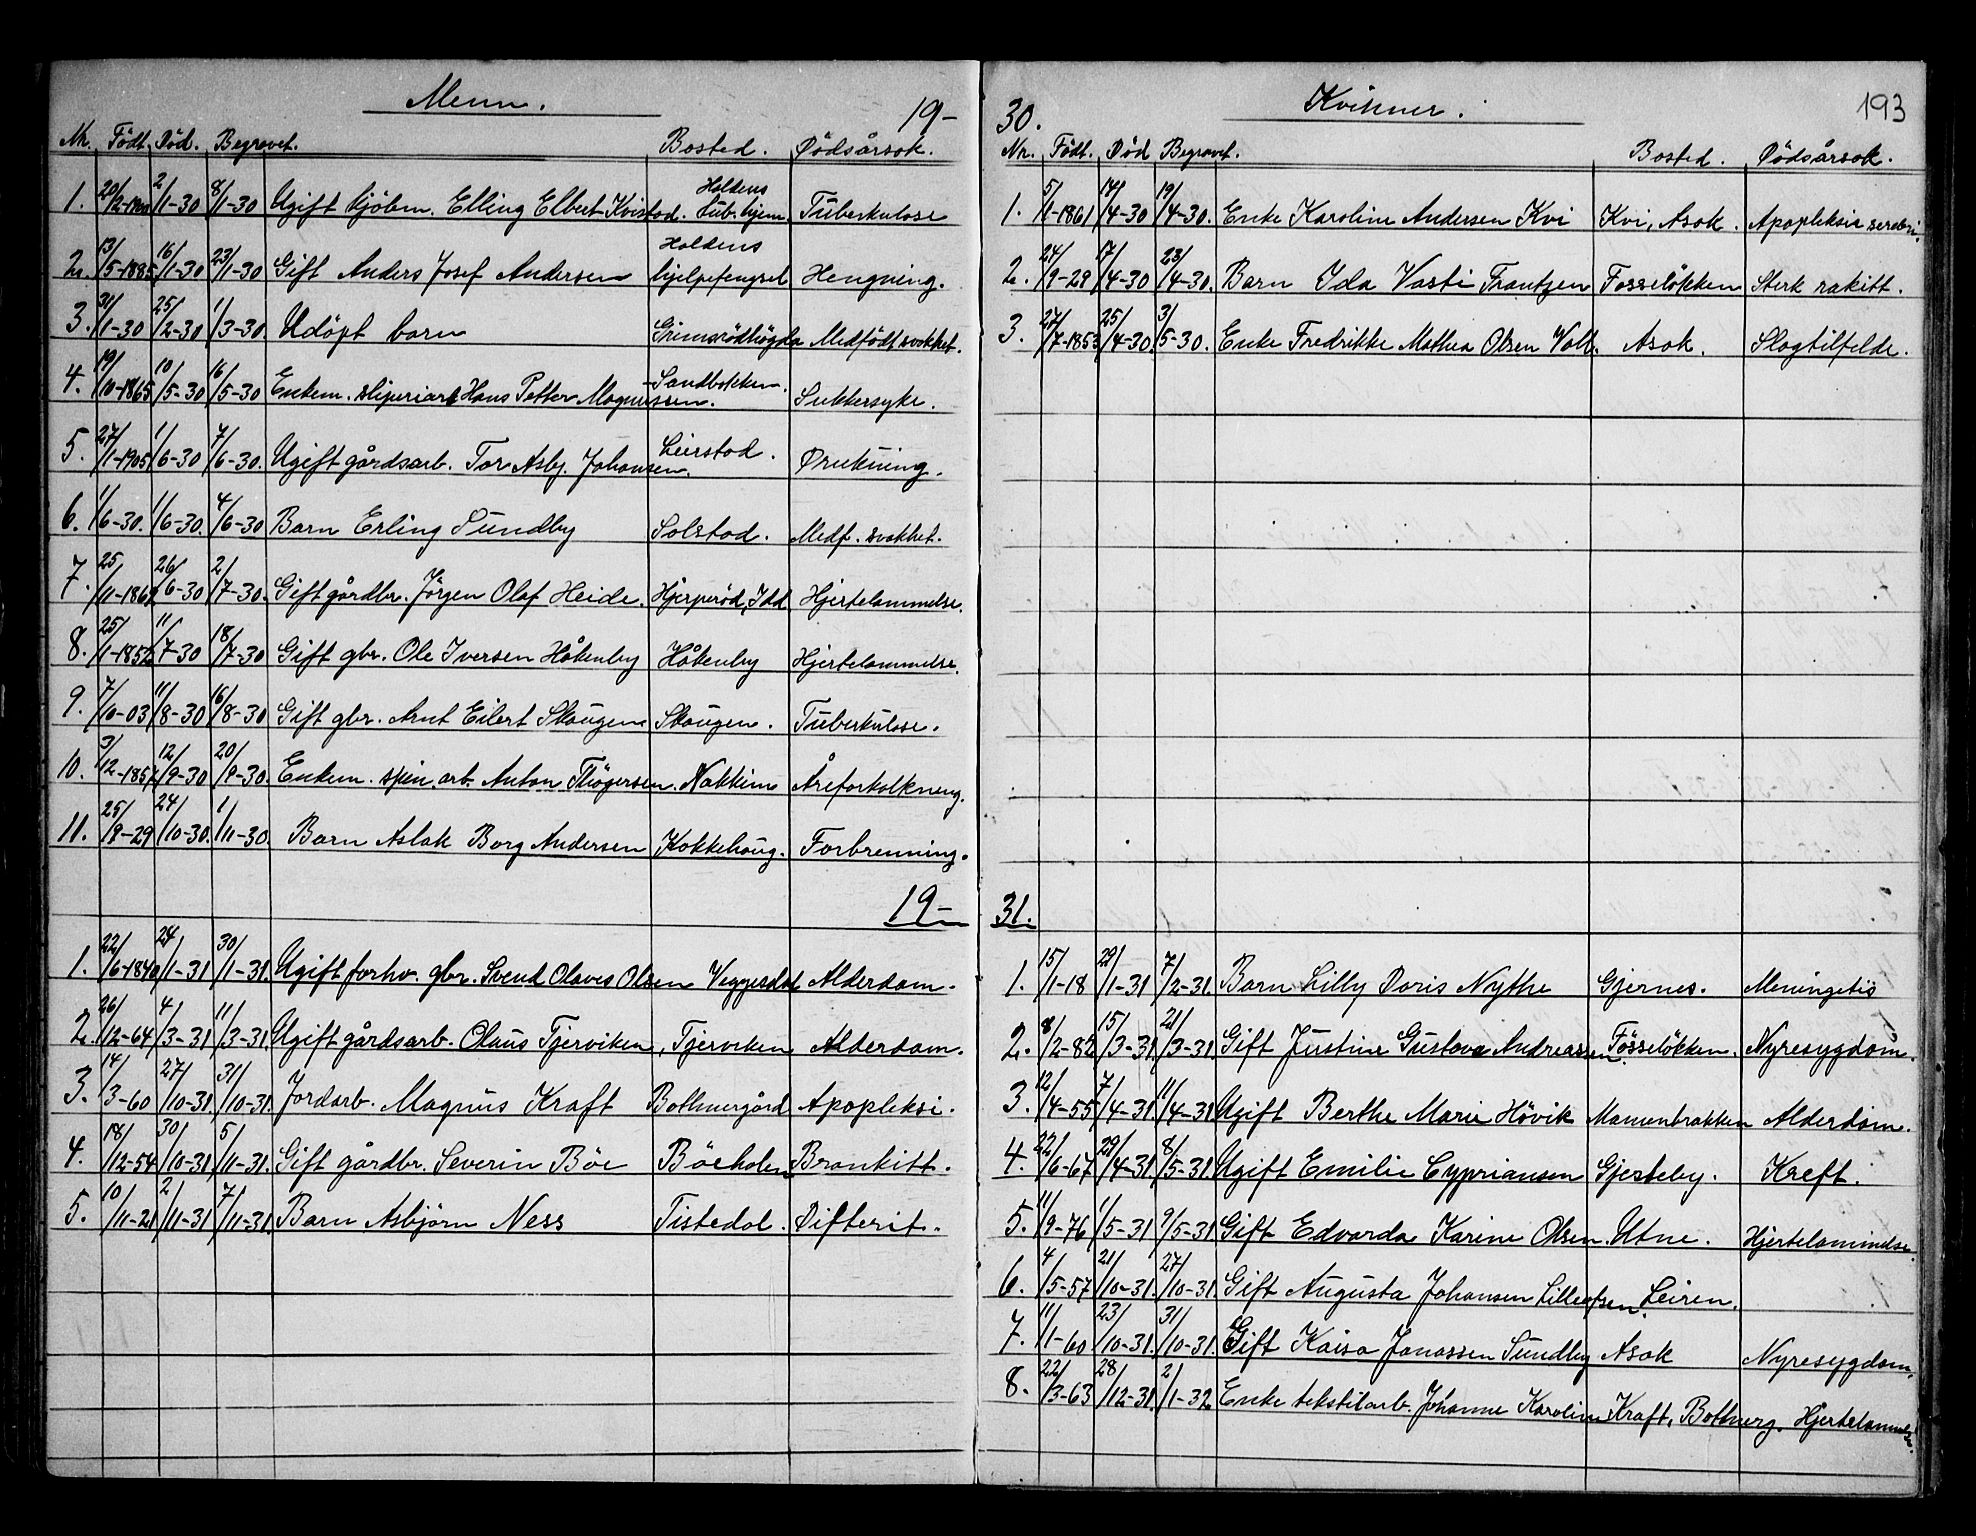 Menn. 19-
Nr. Født. Død. Begravet. Bosted. Dødsårsak.
1. 20/2-1900 2/1-30 8/1-30 Ugift kjöbm. Elling Elbert Kvistad. Haldens Tub.hjem. Tuberkulose
2. 13/5-1885 16/1-30 23/1-30 Gift Anders Josef Andersen Haldens hjelpefengsel Hengning.
3. 31/1-30 25/2-30 1/3-30. Udöpt barn Grimsrödhögda Medfödt svakhet.
4. 19/10-1865 10/5-30 16/5-30 Enkem. sliperiarb. Hans Petter Magnussen. Sandbakken. Sukkersyke.
5. 27/1-1905 1/6-30 7/6-30. Ugift gårdsarb. Tor Asbj. Johansen. Leirstad. Drukning.
6. 1/6-30. 1/6-30. 4/6-30 Barn Erling Sundby Solstad. Medf. svakhet.
7. 25/11-1862 26/6-30 2/7-30. Gift gårdbr. Jörgen Olaf Heide. Hjerperöd, Idd Hjertelammelse.
8. 25/1-1852 11/7-30 18/7-30 Gift gbr. Ole Iversen Håkenby Håkenby Hjertelammelse.
9. 7/10-03 11/8-30 16/8-30 Gift gbr. Arnt Eilert Skaugen Skaugen. Tuberkulose.
10. 3/12-1852 12/9-30 20/9-30. Enkem. spin. arb. Anton Thögersen. Nakkim Åreforkalkning.
11. 25/9-29 24/10-30. 1/11-30. Barn Aslak Borg Andersen Kokkehaug. Forbrenning.
19-
1. 22/6-1840 24/1-31 30/1-31. Ugift forhv. gbr. Svend Olaves Olsen Veggesdal Alderdom.
2. 26/12-64 4/3-31 11/3-31. Ugift gårdsarb. Olaus Tjerviken, Tjerviken Alderdom.
3. 14/3-60 27/10-31. 31/10-31. Jordarb. Magnus Kraft Bothnergård Apopleksi.
4. 18/12-54 30/10-31. 5/11-31. Gift gårdbr. Severin Böe Böeholen Bronkitt.
5. 10/11-21 2/11-31 7/11-31. Barn Asbjörn Ness Tistedal. Difterit.
30. Kvinner. 193
Nr. Født. Död Begravet. Bosted. Dødsårsak.
1. 5/1-1861 14/4-30 19/4-30. Enke Karoline Andersen Kvi Kvi, Asak. Apopleksia serebri.
2. 24/9-29 17/4-30 23/4-30. Barn Ida Vasti Frantzen Fosseløkken Sterk rakitt.
3. 27/7-1853 25/4-30. 3/5-30. Enke Fredrikke Mathea Olsen Vold. Asak. Slagtilfelde.
31.
1. 15/1-18 29/1-31 7/2-31. Barn Lilly Doris Nythe Gjernes. Meningetis
2. 8/2-82 15/3-31. 21/3-31 Gift Justine Gustava Andreassen Fösselökken. Nyresygdom.
3. 12/4-55 7/4-31. 11/4-31 Ugift Berthe Marie Hövik Mamenbrakken Alderdom.
4. 22/6-67 29/4-31. 8/5-31. Ugift Emilie Cypriansen Gjesteby. Kreft.
5. 11/9-76 1/5-31. 9/5-31 Gift Edvarda Karine Olsen. Utne. Hjertelammelse.
6. 4/5-57 21/10-31. 27/10-31 Gift Augusta Johansen Leiren.
7. 11/1-60 23/10-31. 31/10-31. Gift Kaisa Janassen Sundby Asak Nyresygdom.
8. 22/3-63 28/12-31. 2/1-32 Enke tekstilarb. Johanne Karoline Kraft, Bothnerg. Hjertelammelse.